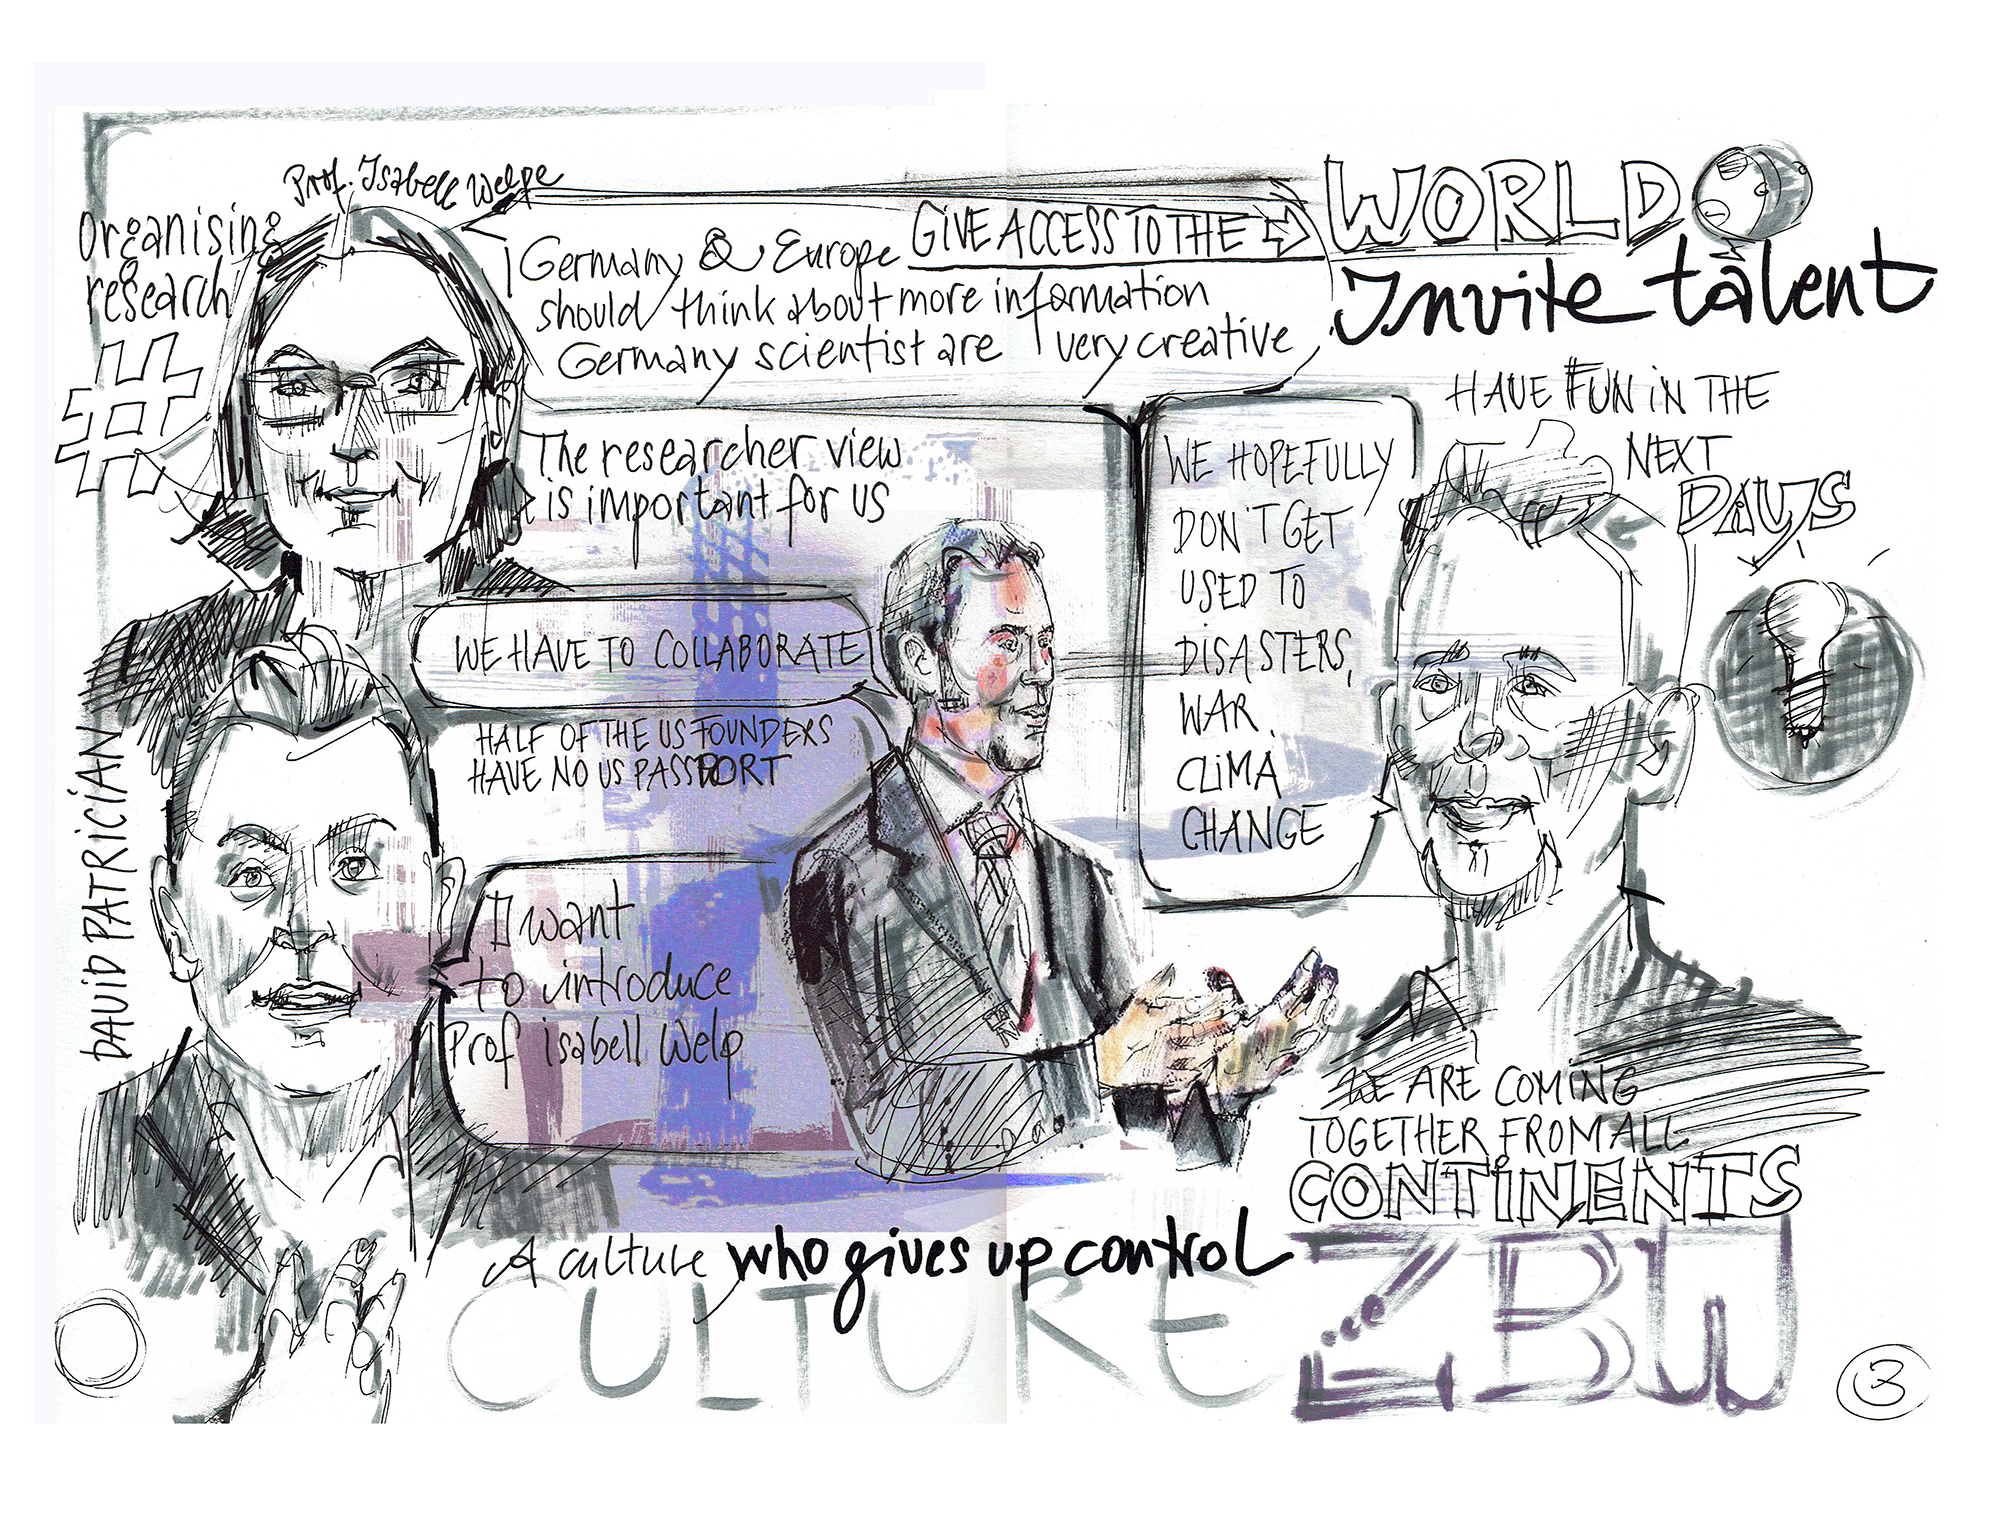 Prof. Isabell Welpe
Organising
research
#
Germany & Europe GIVE ACCESS TO THE
should think about more information
Germany scientist are very creative
WORLD
Invite talent
The researcher view
is important for us
HAVE FUN IN THE
NEXT
DAYS
WE HOPEFULLY
DON'T GET
USED TO
DISASTERS,
WAR,
CLIMA
CHANGE
WE HAVE TO COLLABORATE
HALF OF THE US FOUNDERS
HAVE NO US PASSPORT
DAVID PATRICIAN
I want
to introduce
Prof isabell Welp
WE ARE COMING
TOGETHER FROM ALL
CONTINENTS
A culture who gives up control
CULTURE
ZBW
3